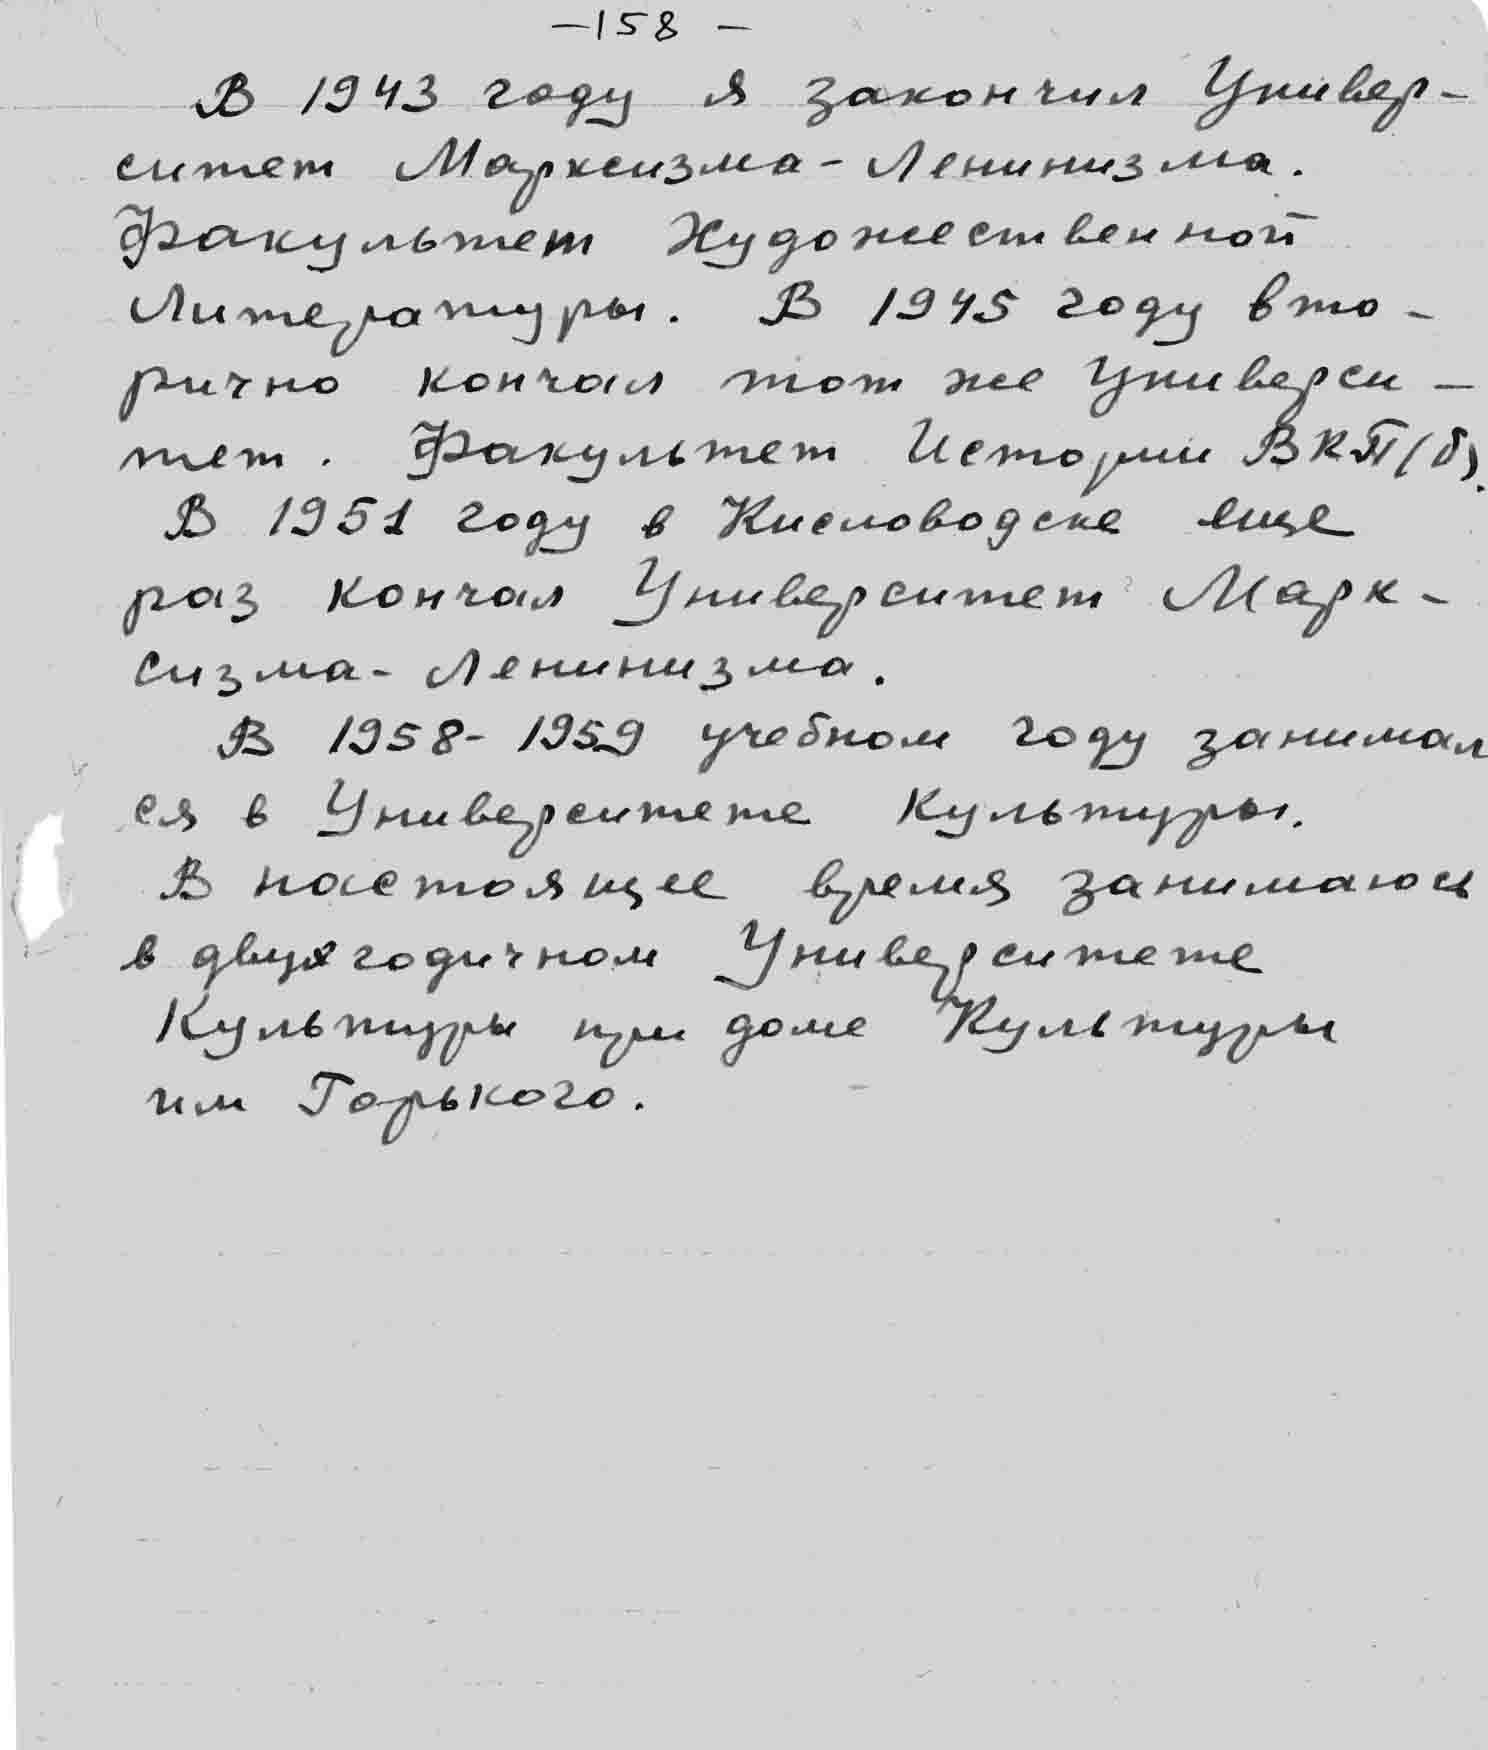 -158-
В 1943 году я закончил Универ-
ситет Марксизма-Ленинизма.
Факультет Художественной
Литературы. В 1945 году вто-
рично кончал тот же Универси-
тет. Факультет Истории ВКП(б).
В 1951 году в Кисловодске еще
раз кончал Университет Марк-
сизма-Ленинизма.
В 1958-1959 учебном году занимал
ся в Университете Культуры.
В настоящее время занимаюсь
в двухгодичном Университете
Культуры при доме Культуры
им Горького.